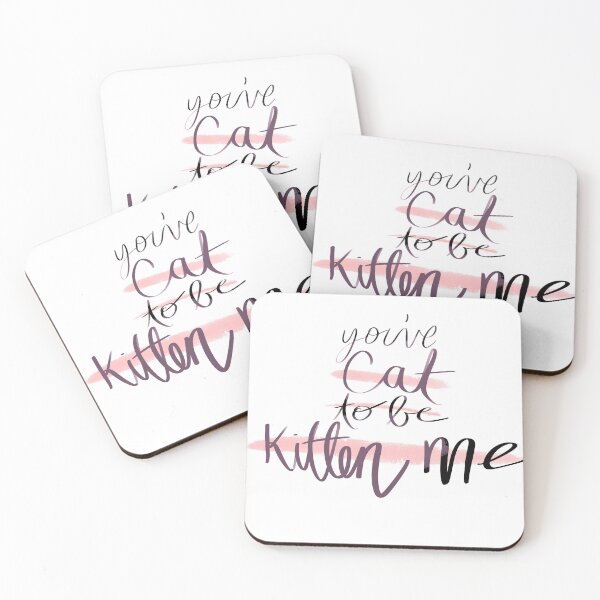 you've
Cat
to be
you've
Cat
to be
Kitten Me
you've
Cat
to be
Kitten
you've
Cat
to be
Kitten Me